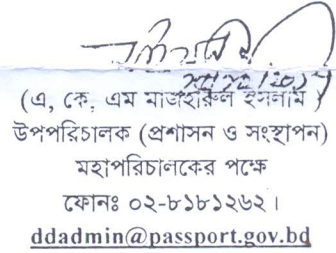 (এ, কে, এম মাজহারুল ইসলাম)
উপপরিচালক (প্রশাসন ও সংস্থাপন)
মহাপরিচালকের পক্ষে
ফোনঃ ০২-৮১৮১২৬২।
ddadmin@passport.gov.bd